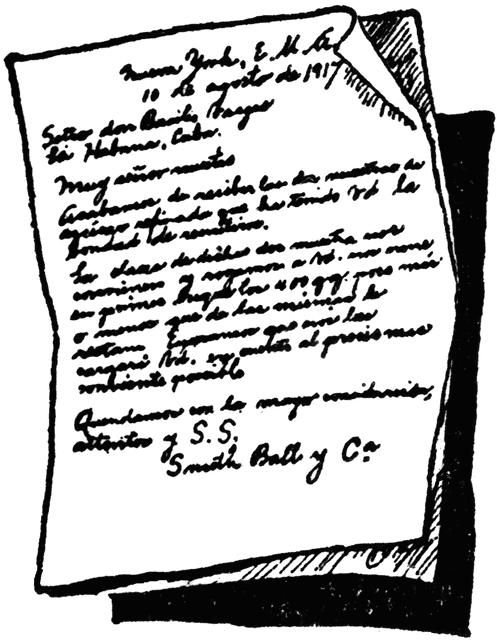 Nueva York, E. U. A.
10 de agosto de 1917
Señor don Basilio Vargas
La Habana, Cuba.
Muy señor nuestro
Acabamos de recibir las dos muestras de
azúcar refinado que ha tenido Vd la
bondad de remitirnos.
La clase de dichas dos muestras nos
conviene y rogamos a Vd. nos envie
en primer lugar los 400 qq. poco más
o menos que de las mismas le
restan. Esperamos que nos las
cargará Vd. en cuenta al precio mas
conveniente posible
Quedamos con la mayor consideración,
atentos y S. S.
Smith Ball y Cª